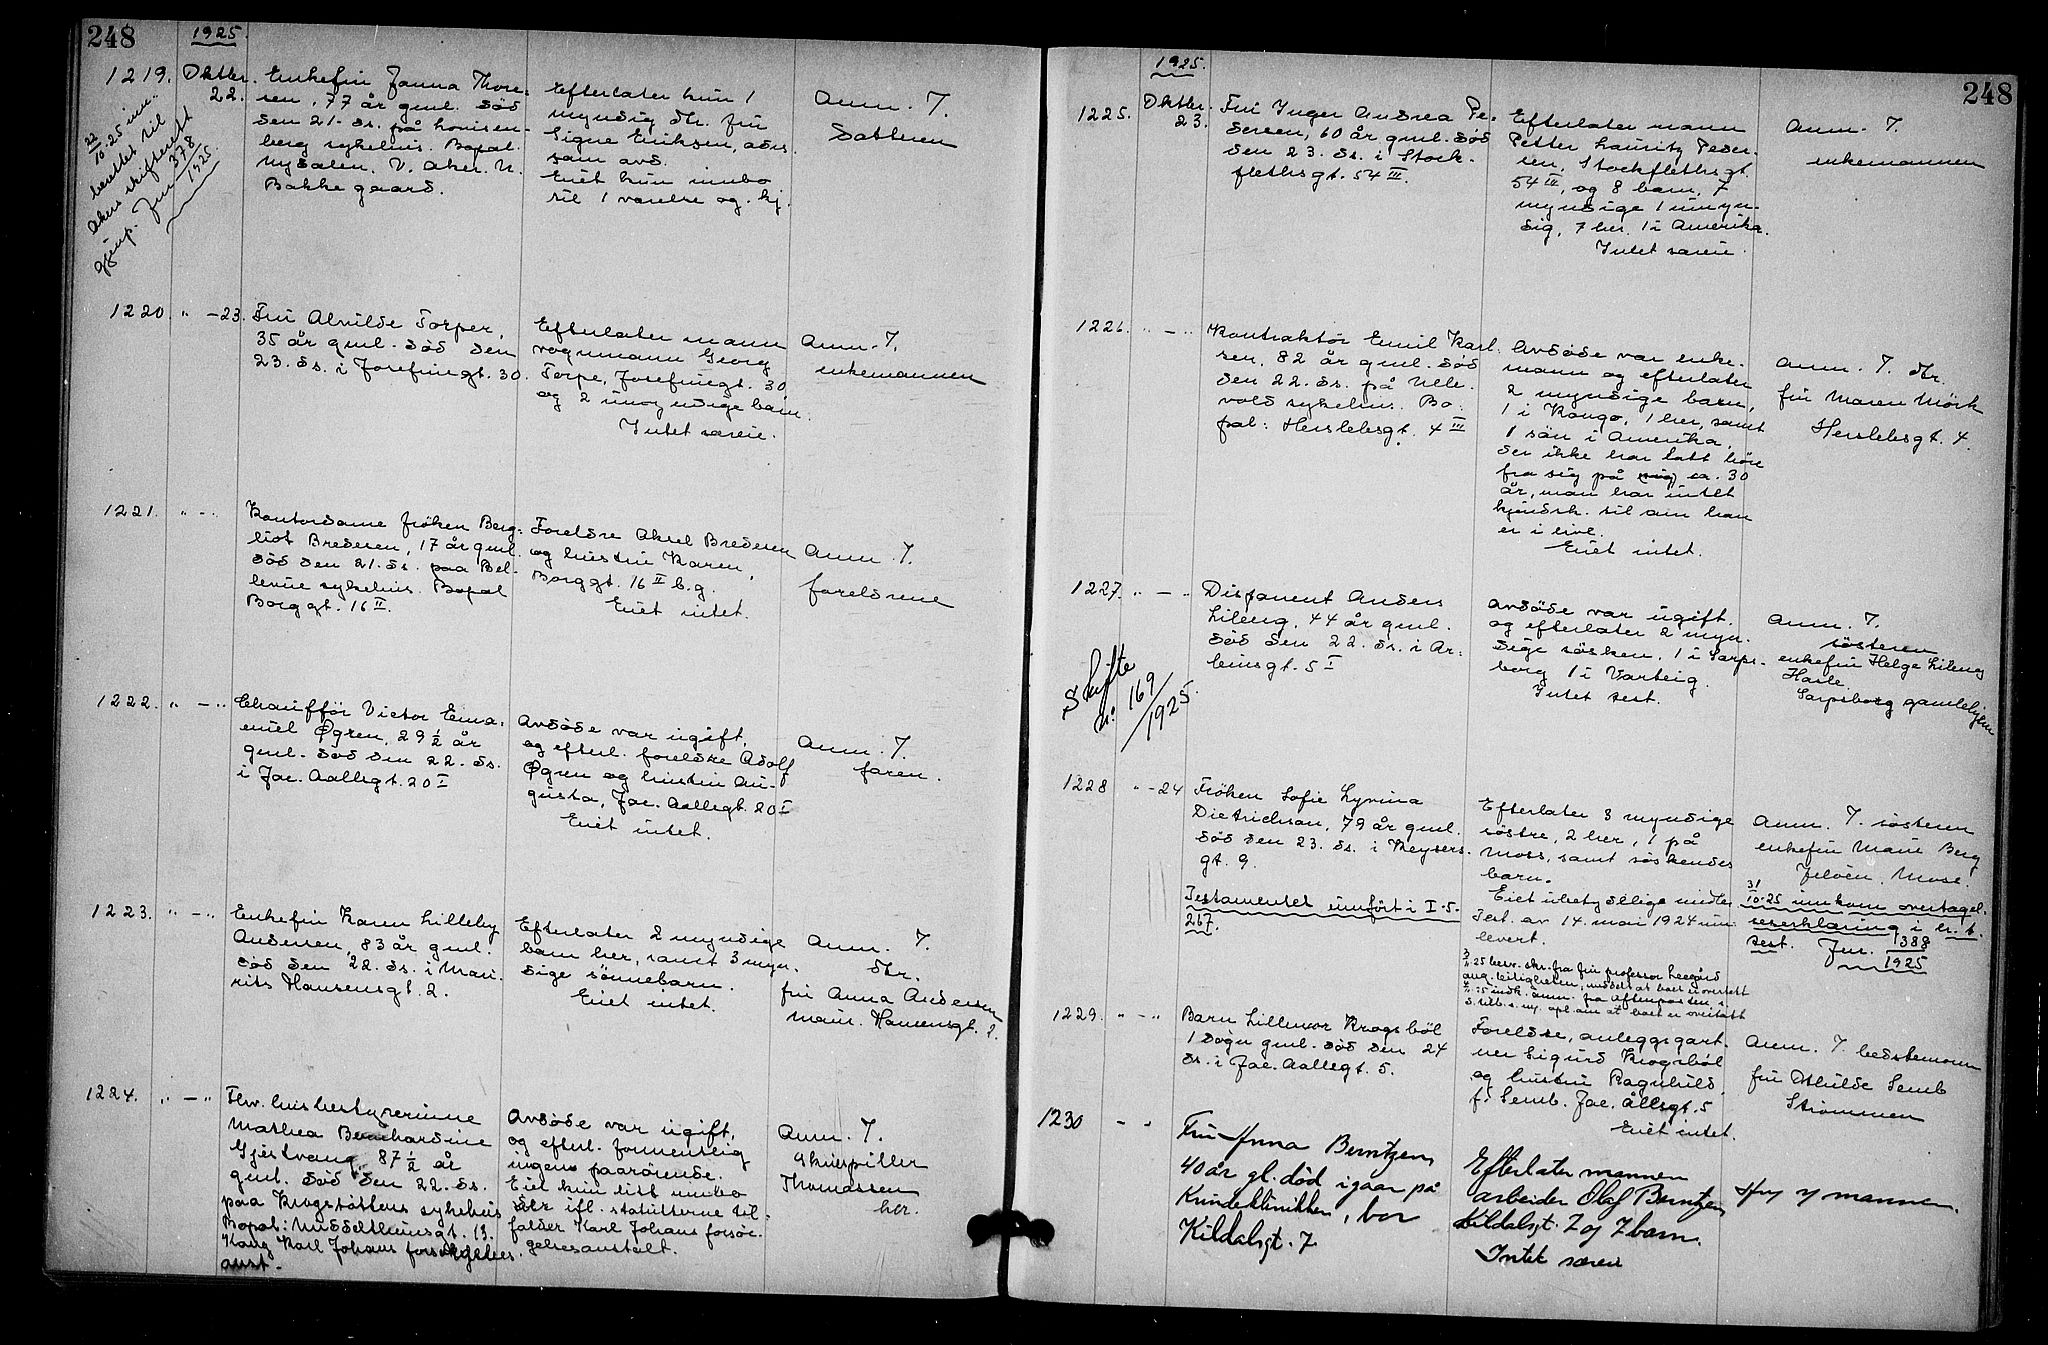 248
1925.
1219. Oktbr. 22.
22/10.25 inn..
berettet til
Akers skifterett
gjenp. Jnr 378/1925.
Enkefru Janna Thore-
sen, 77 år gml. död
den 21. ds. på Lovisen-
berg sykehus. Bopæl
Nydalen. V. Aker. N.
Bakke gaard.
Efterlater kun 1
myndig dtr. fru
Signe Eriksen, adrs.
som avd.
Eiet kun innbo
til 1 værelse og kj.
Anm. 7.
Datteren
1220. " - 23.
Fru Alvilde Torper,
35 år gml. död den
23. ds. i Josefinegt. 30.
Efterlater mann
vognmann Georg
Torpe, Josefinegt. 30,
og 2 umyndige barn.
Intet særeie.
Anm. 7.
enkemannen
1221. " - "
Kontordame fröken Berg-
liot Bredesen, 17 år gml.
död den 21. ds. paa Bel-
levue sykehus. Bopæl
Borggt. 16 II.
Foreldre Aksel Bredesen
og hustru Karen,
Borggt. 16 II b.g.
Eiet intet.
Anm. 7.
foreldrene
1222. " - "
Chaufför Victor Ema-
nuel Øgren, 29 1/2 år
gml. död den 22. ds.
i Jac. Aallsgt. 20 I
Avdöde var ugift,
og efterl. foreldre Adolf
Øgren og hustru Au-
gusta, Jac. Aallsgt. 20 I
Eiet intet.
Anm. 7.
faren.
1223. " - "
Enkefru Karen Lilleby
Andersen, 83 år gml.
död den 22. ds. i Mau-
ritz Hansensgt. 2.
Efterlater 2 myndige
barn her, samt 3 myn-
dige sönnebarn.
Eiet intet.
Anm. 7.
dtr.
fru Anna Andersen
Maur. Hansensgt. 2.
1224. " - "
Fhv. husbestyrerinne
Mathea Bernhardine
Gjestvang, 87 1/2 år
gml. död den 22. ds.
paa Krogstöttens sykehus
Bopæl: Middelthunsgt. 13.
Kong Karl Johans forsørgelses
anst.
Avdöde var ugift,
og efterl. formentlig
ingen paarörende.
Eiet kun litt innbo
der ifl. statuttene til-
falder Karl Johans forsör-
gelsesanstalt.
Anm. 7.
Skuespiller
Thomassen
her.
248
1925.
1225. Oktbr. 23.
Fru Inger Andrea Pe-
dersen, 60 år gml. död
den 23. ds. i Stock-
flethsgt. 54 III.
Efterlater mann
Petter Lauritz Peder-
sen, Stockflethsgt.
54 III, og 8 barn, 7
myndige 1 umyn-
dig, 7 her. 1 i Amerika.
Intet særeie.
Anm. 7.
enkemannen
1226. " - "
Kontraktör Emil Karl-
sen, 82 år gml. död
den 22. ds. på Ulle-
vold sykehus. Bo-
pæl: Herslebsgt. 4 III
Avdöde var enke-
mann og efterlater
2 myndige barn,
1 i Kongo, 1 her, samt
1 sön i Amerika,
der ikke har latt höre
fra sig på ca. 30
år, man har intet
kjendsk. til om han
er i live.
Eiet intet.
Anm. 7. dtr.
fru Maren Mörk
Herslebsgt. 4.
1227. " - "
Skifte
nr. 169/1925.
Disponent Anders
Lileng, 44 år gml.
död den 22. ds. i Ar-
beinsgt. 5 I
Avdöde var ugift.
og efterlater 2 myn-
dige sösken, 1 i Sarps-
borg 1 i Varteig.
Intet test.
Anm. 7.
söstern
enkefru Helga Lileng
Hasle
Sarpsborg gamlehjem
1228 " - 24
Fröken Sofie Lyvina
Dietrichson, 79 år gml.
död den 23. ds. i Keysers-
gt. 9.
Testamentet innfört i I. 5.
267.
Efterlater 3 myndige
söstre, 2 her, 1 på
Moss, samt söskendes
barn.
Eiet ubetydelige midler
Test. av 14. mai 1924 inn
levert.
Anm. 7. sösteren
enkefru Marie Berg
Jelöen, Moss.
31/10.25 innkom overtagel-
seserklæring i hr. t.
test. Jnr. 1388/1925
1229. " - "
Barn Lillemor Krogsböl
1 dögn gml. död den 24
ds. i Jac. Aallsgt. 5.
Foreldre, anleggsgart-
ner Sigurd Krogsböl
og hustru Ragnhild,
f. Semb. Jac. Ållsgt. 5
Eiet intet.
Anm. 7. bedstemoren
fru Mhilde Semb
Strömmen
1230 " - "
Fru Anna Berntzen,
40 år gl. död igaar på
Kvindeklinikken, bor
Kildalsgt. 7
Efterlater mannen
arbeider Olaf Berntzen,
Kildalsgt. 7 og 7 barn.
Intet særeie
mannen.